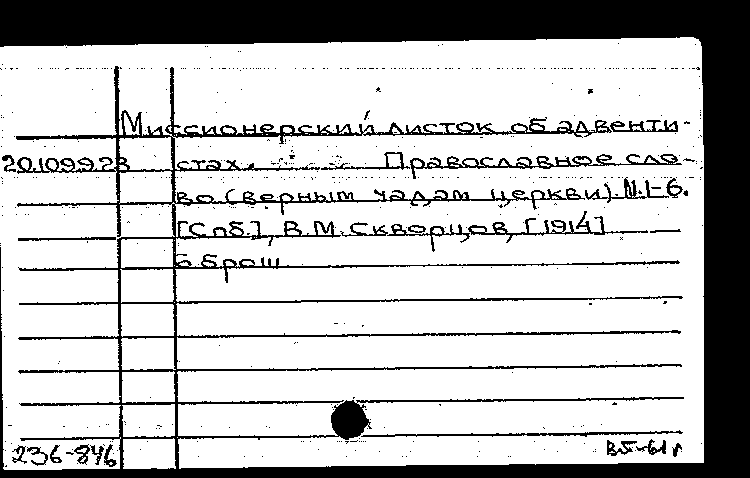 Миссионерский листок об адвенти-
20.109.9.23 стах. Православное сло-
во (верным чадам церкви). N.1-6.
[Спб.], В.М. Скворцов, [1914]
6 брош
236-846